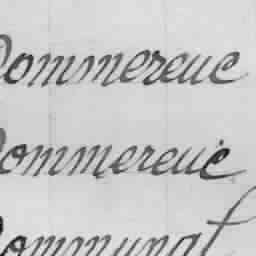 Dommereuc
Dommereuc
Communal